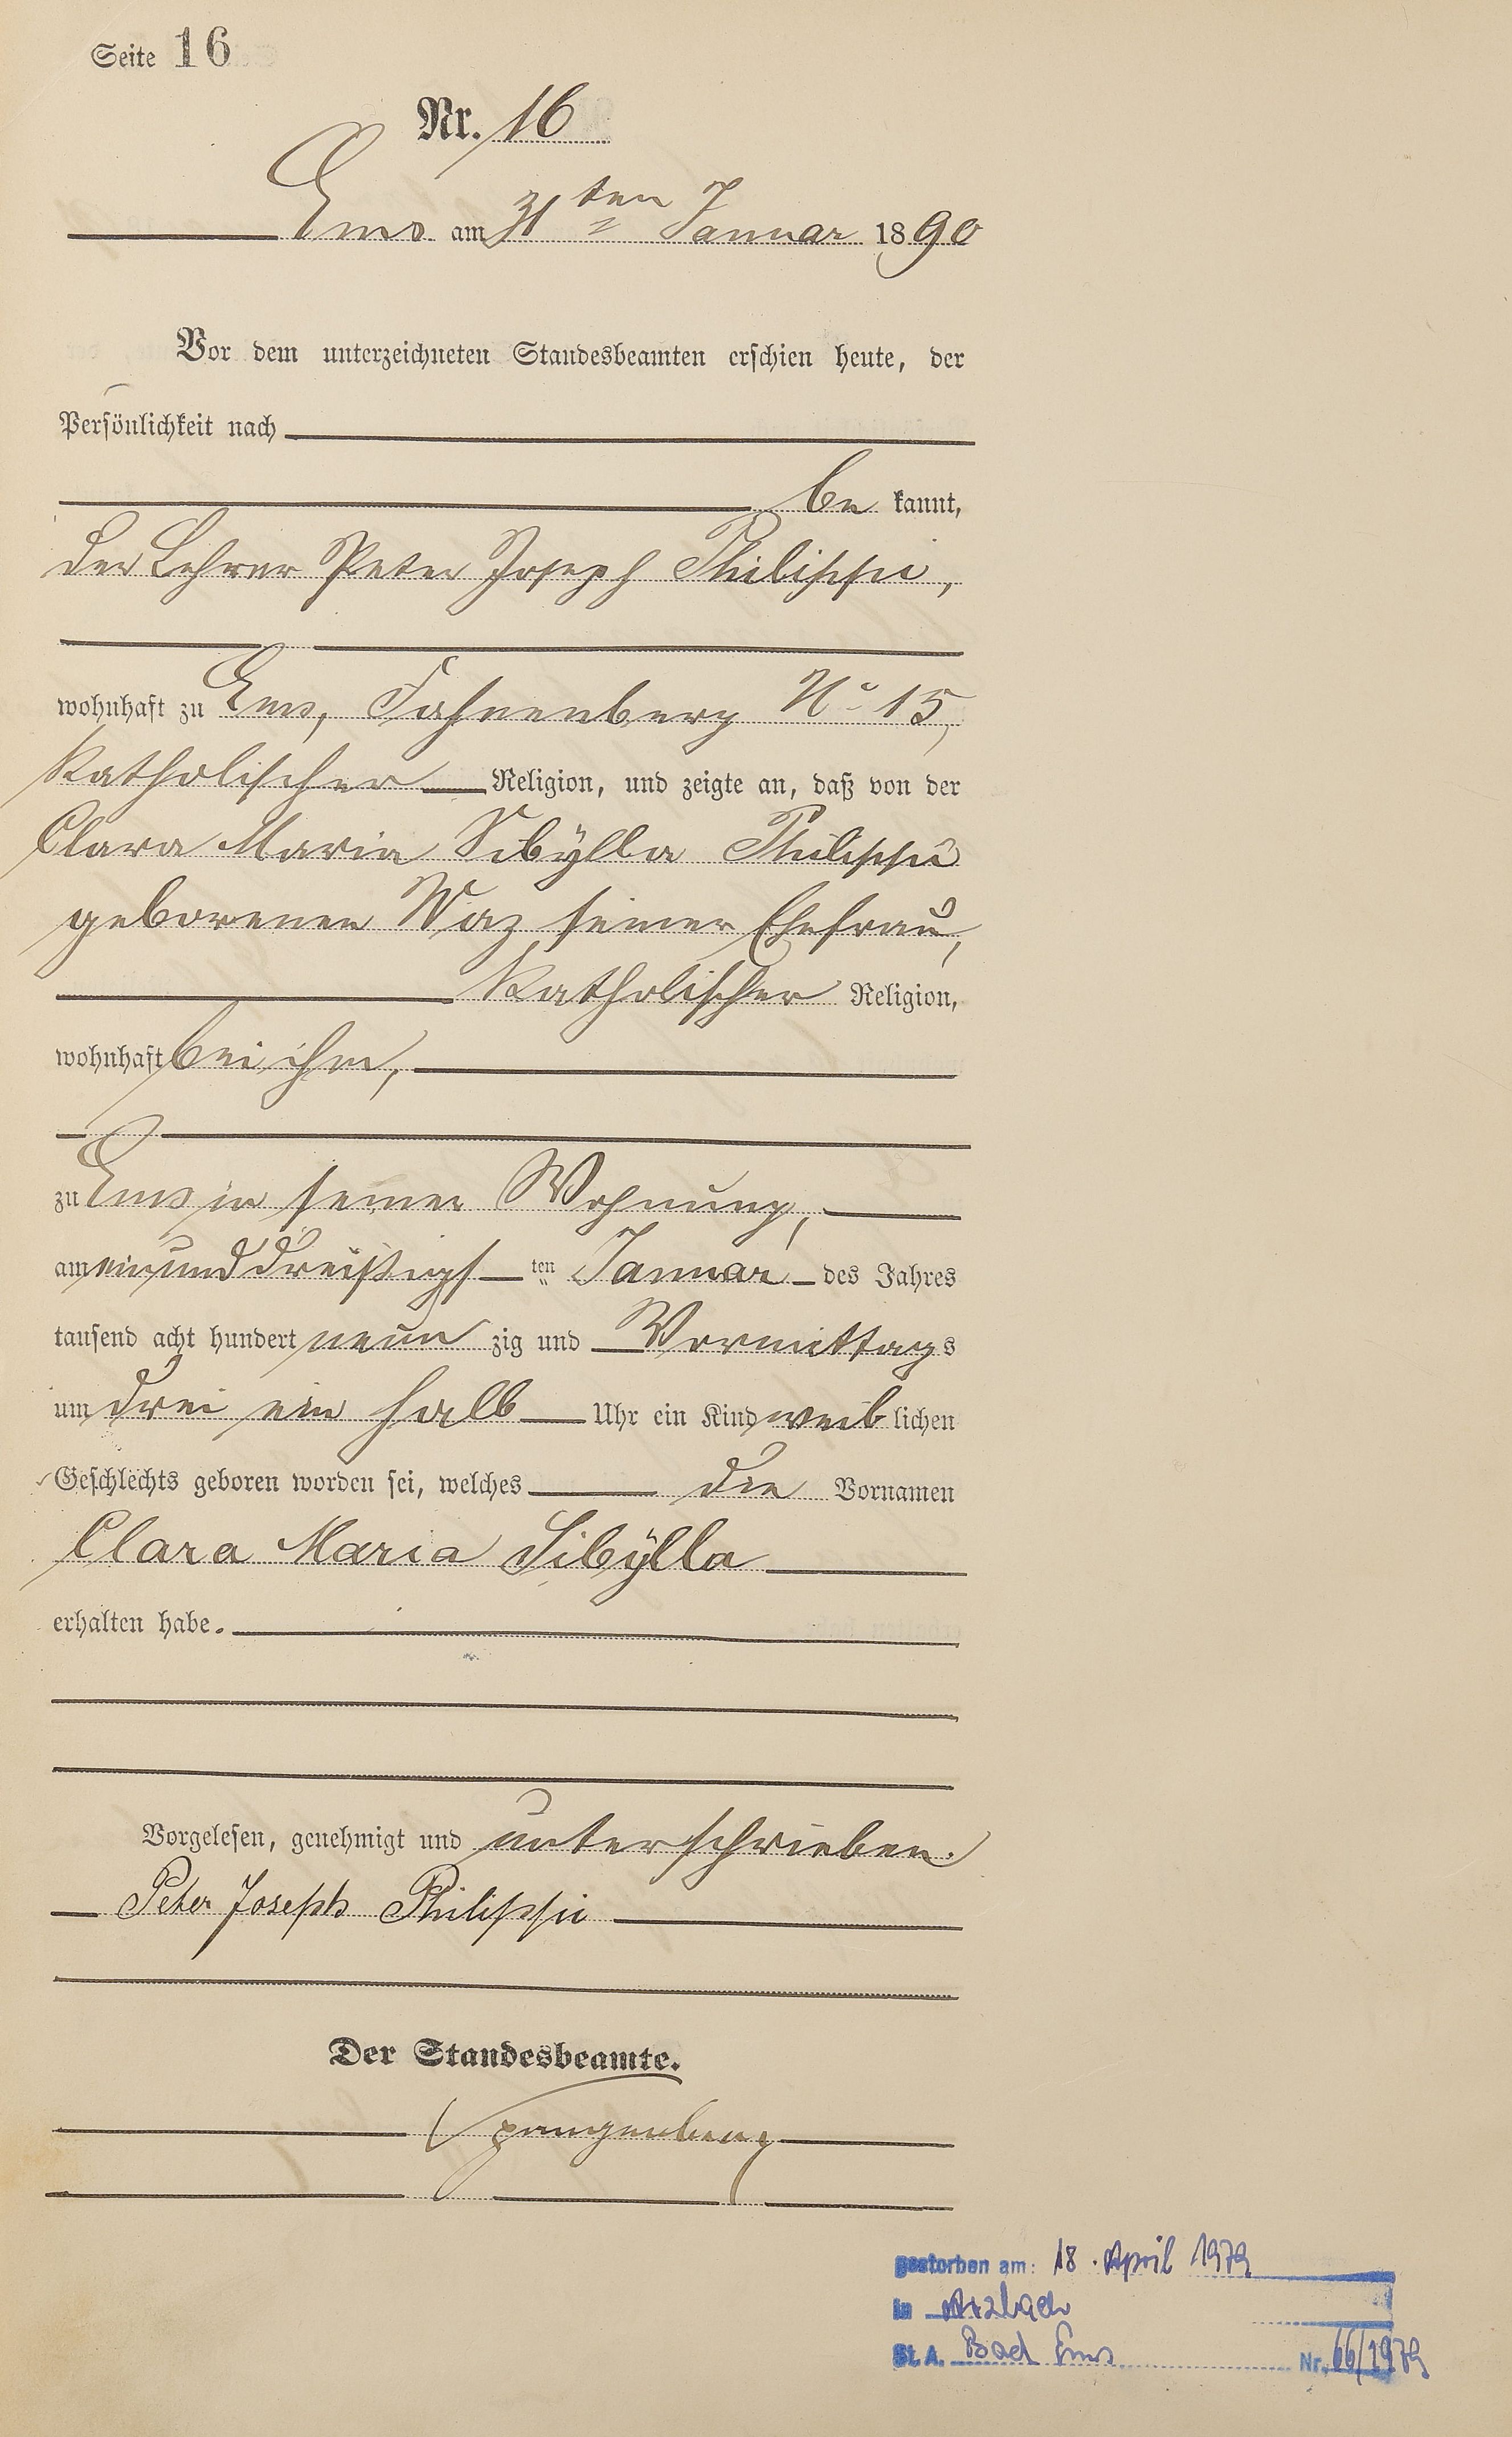 Seite 16
Nr. 16
Ems am 31ten Januar 1890
Vor dem unterzeichneten Standesbeamten erschien heute, der
Persönlichkeit nach
be kannt,
der Lehrer Peter Joseph Philippi,
wohnhaft zu Ems, Fahnenberg No 15,
katholischer Religion, und zeigte an, daß von der
Clara Maria Sibÿlla Philippi
geborenen Waz, seiner Ehefrau,
katholischer Religion,
wohnhaft bei ihm,
zu Ems in seiner Wohnung,
am einunddreißigsten Januar des Jahres
tausend acht hundert neun zig und Vormittags
um drei ein halb Uhr ein Kind weib lichen
Geschlechts geboren worden sei, welches die Vornamen
Clara Maria Sibÿlla
erhalten habe.
Vorgelesen, genehmigt und unterschrieben.
Peter Joseph Philippi
Der Standesbeamte.
Spangenberg
gestorben am: 18. April 1979
in Arzbach
St. A. Bad Ems Nr. 66/1979